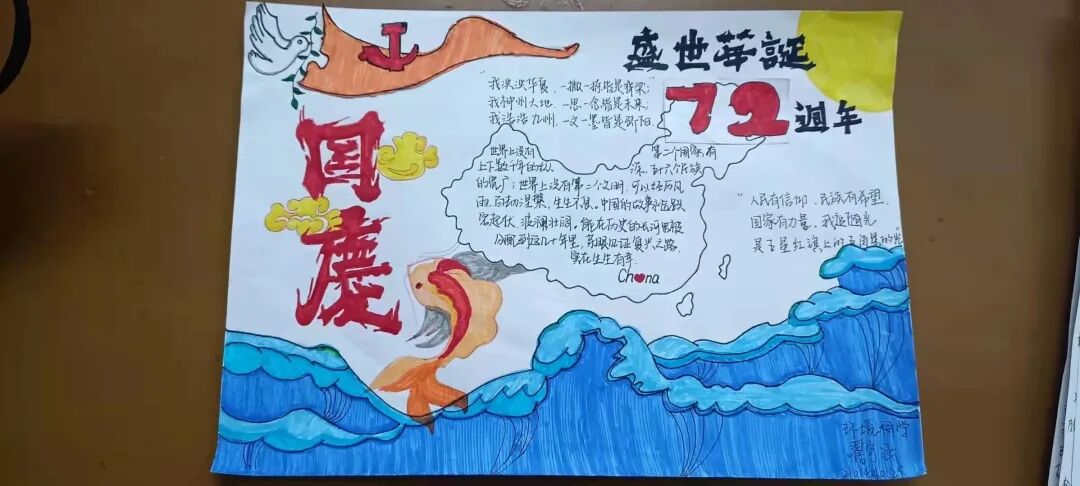 盛世華誕
72週年
国慶
"我泱泱华夏，一撇一捺皆是脊梁；
我神州大地，一思一念皆是未来；
我浩浩九州，一文一墨皆是骄阳．
世界上没有 第二个国家，有
上下数千年的 深，五十六个民族
的宽广；世界上没有第二个文明，可以经历风
雨，百劫涅槃，生生不息。中国的故事
起伏，波澜壮阔，能在历史的长河里被
分配到这几十年里，亲眼见证复兴之路，
实在生生有幸．
China
"人民有信仰，民族有希望，
国家有力量，我追随光
是五星红旗上的五颗星的光"
环境科学